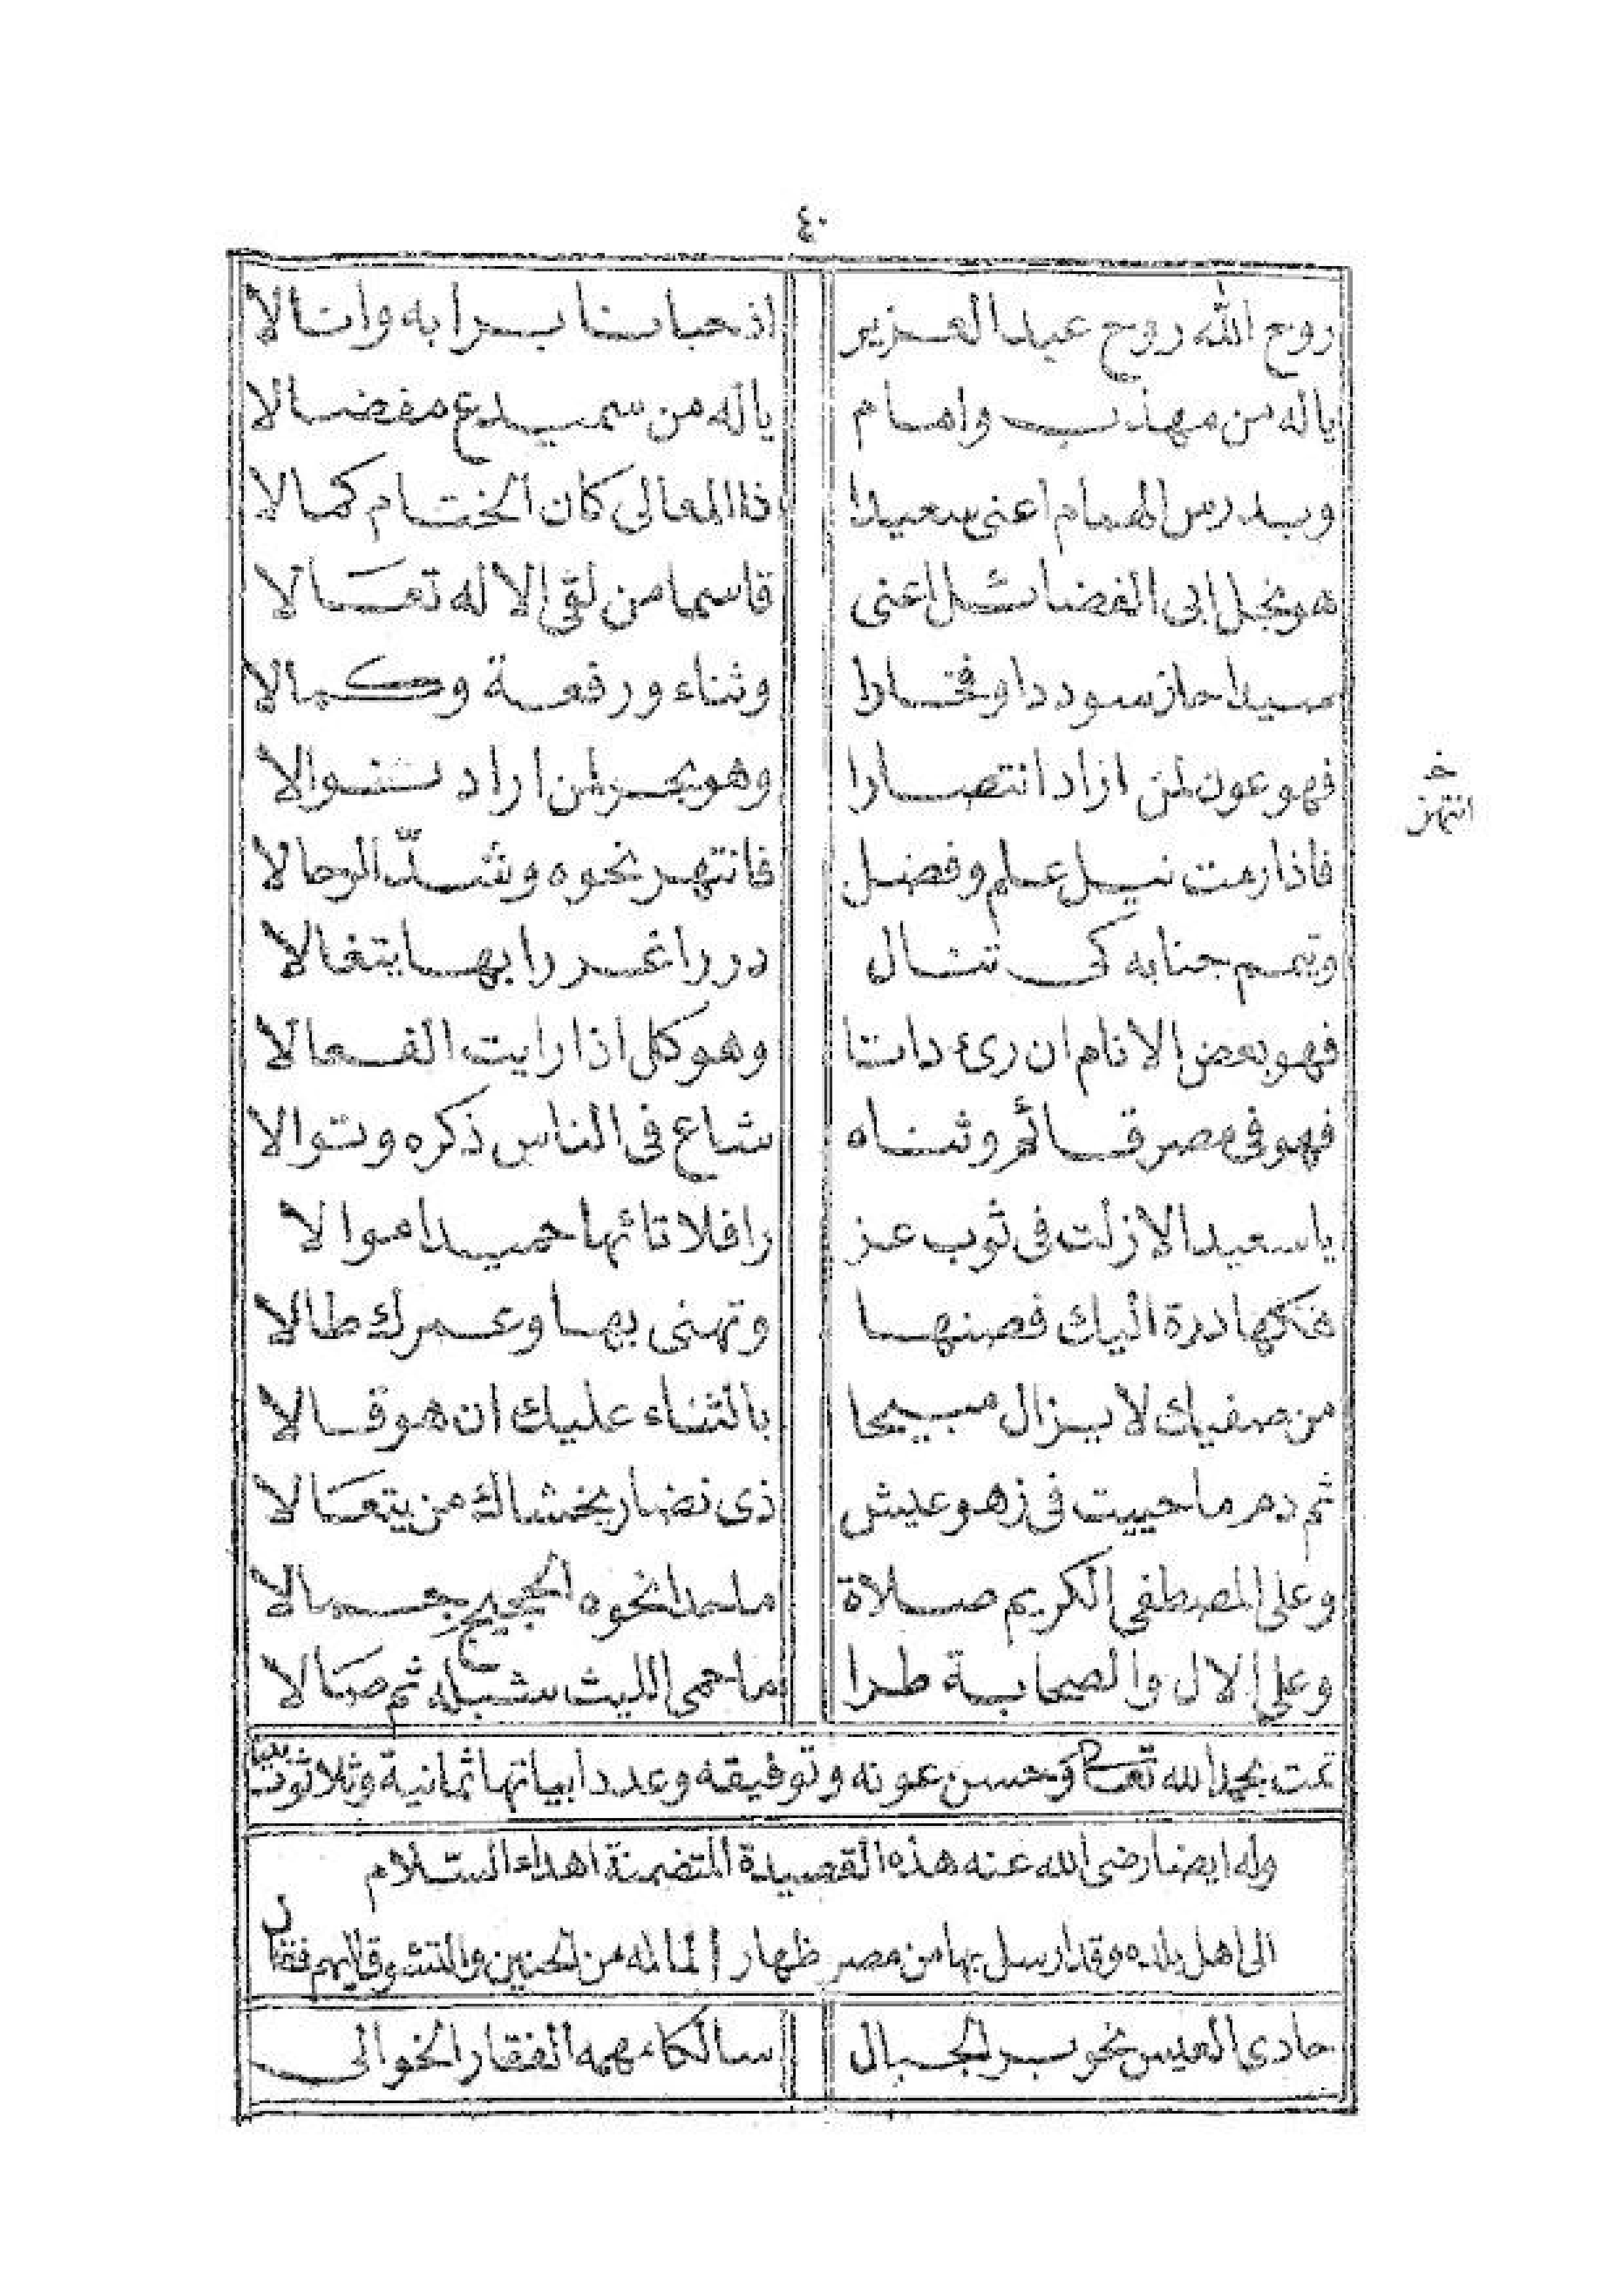 ٤٠
روح الله روح عبد العزيز اذ حبانا ببرا به وانالا
ياله من مهذب وامام ياله من سميدع مفضالا
وببدر س الهمام اعنى سعيدا ذا المعالى كان الختام كمالا
هو نجل ابى الفضائل اعنى قاسما من لقى الاله تعالا
سيدا حاز سوددا وفخارا وثناء ورفعة وكمالا
فهو عون لمن اراد انتصارا وهو بحر لمن اراد نوالا
خـ
انتهز
فاذا رمت نيل علم وفضل فانتهر نحوه وشدّ الرحالا
ويمم جنابه كى تنال دررا غررا بها يتغالا
فهو بعض الانام ان رئ ذاتا وهو كل اذا رايت الفعالا
فهو فى مصر قائم وثناه شاع فى الناس ذكره وتوالا
يا سعيدا لا زلت فى ثوب عز رافلا تائها حميدا موالا
فكها درة اليك فصنها وتهنى بها وعمرك طالا
من صفيك لا يزال مبيحا بالثناء عليك ان هو قالا
ثم دم ما حييت فى زهو عيش ذى نضار يخشاك من يتعالا
وعلى المصطفى الكريم صلاة ما حدا نحوه الحجيج جمالا
وعلى الال والصحابة طرا ما حمى الليث شبله ثم صالا
تمت بحمد الله تعالى وحسن عونه وتوفيقه وعدد ابياتها ثمانية وثلاثون بيتا
وله ايضا رضى الله عنه هذه القصيدة المتضمنة اهداء السّلام
الى اهل بلده وقد ارسل بها من مصر ظهار الما له من الحنين والتشوق اليهم فقال
حادى العيس نحو بر الجبال سالكا مهمه القفار الخوالى